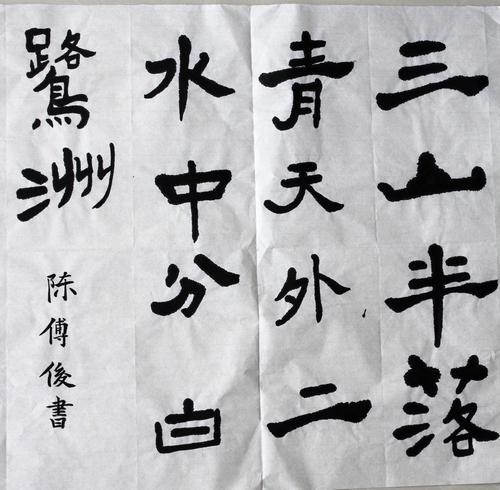 三山半落
青天外二
水中分白
鷺洲
陈傅俊書